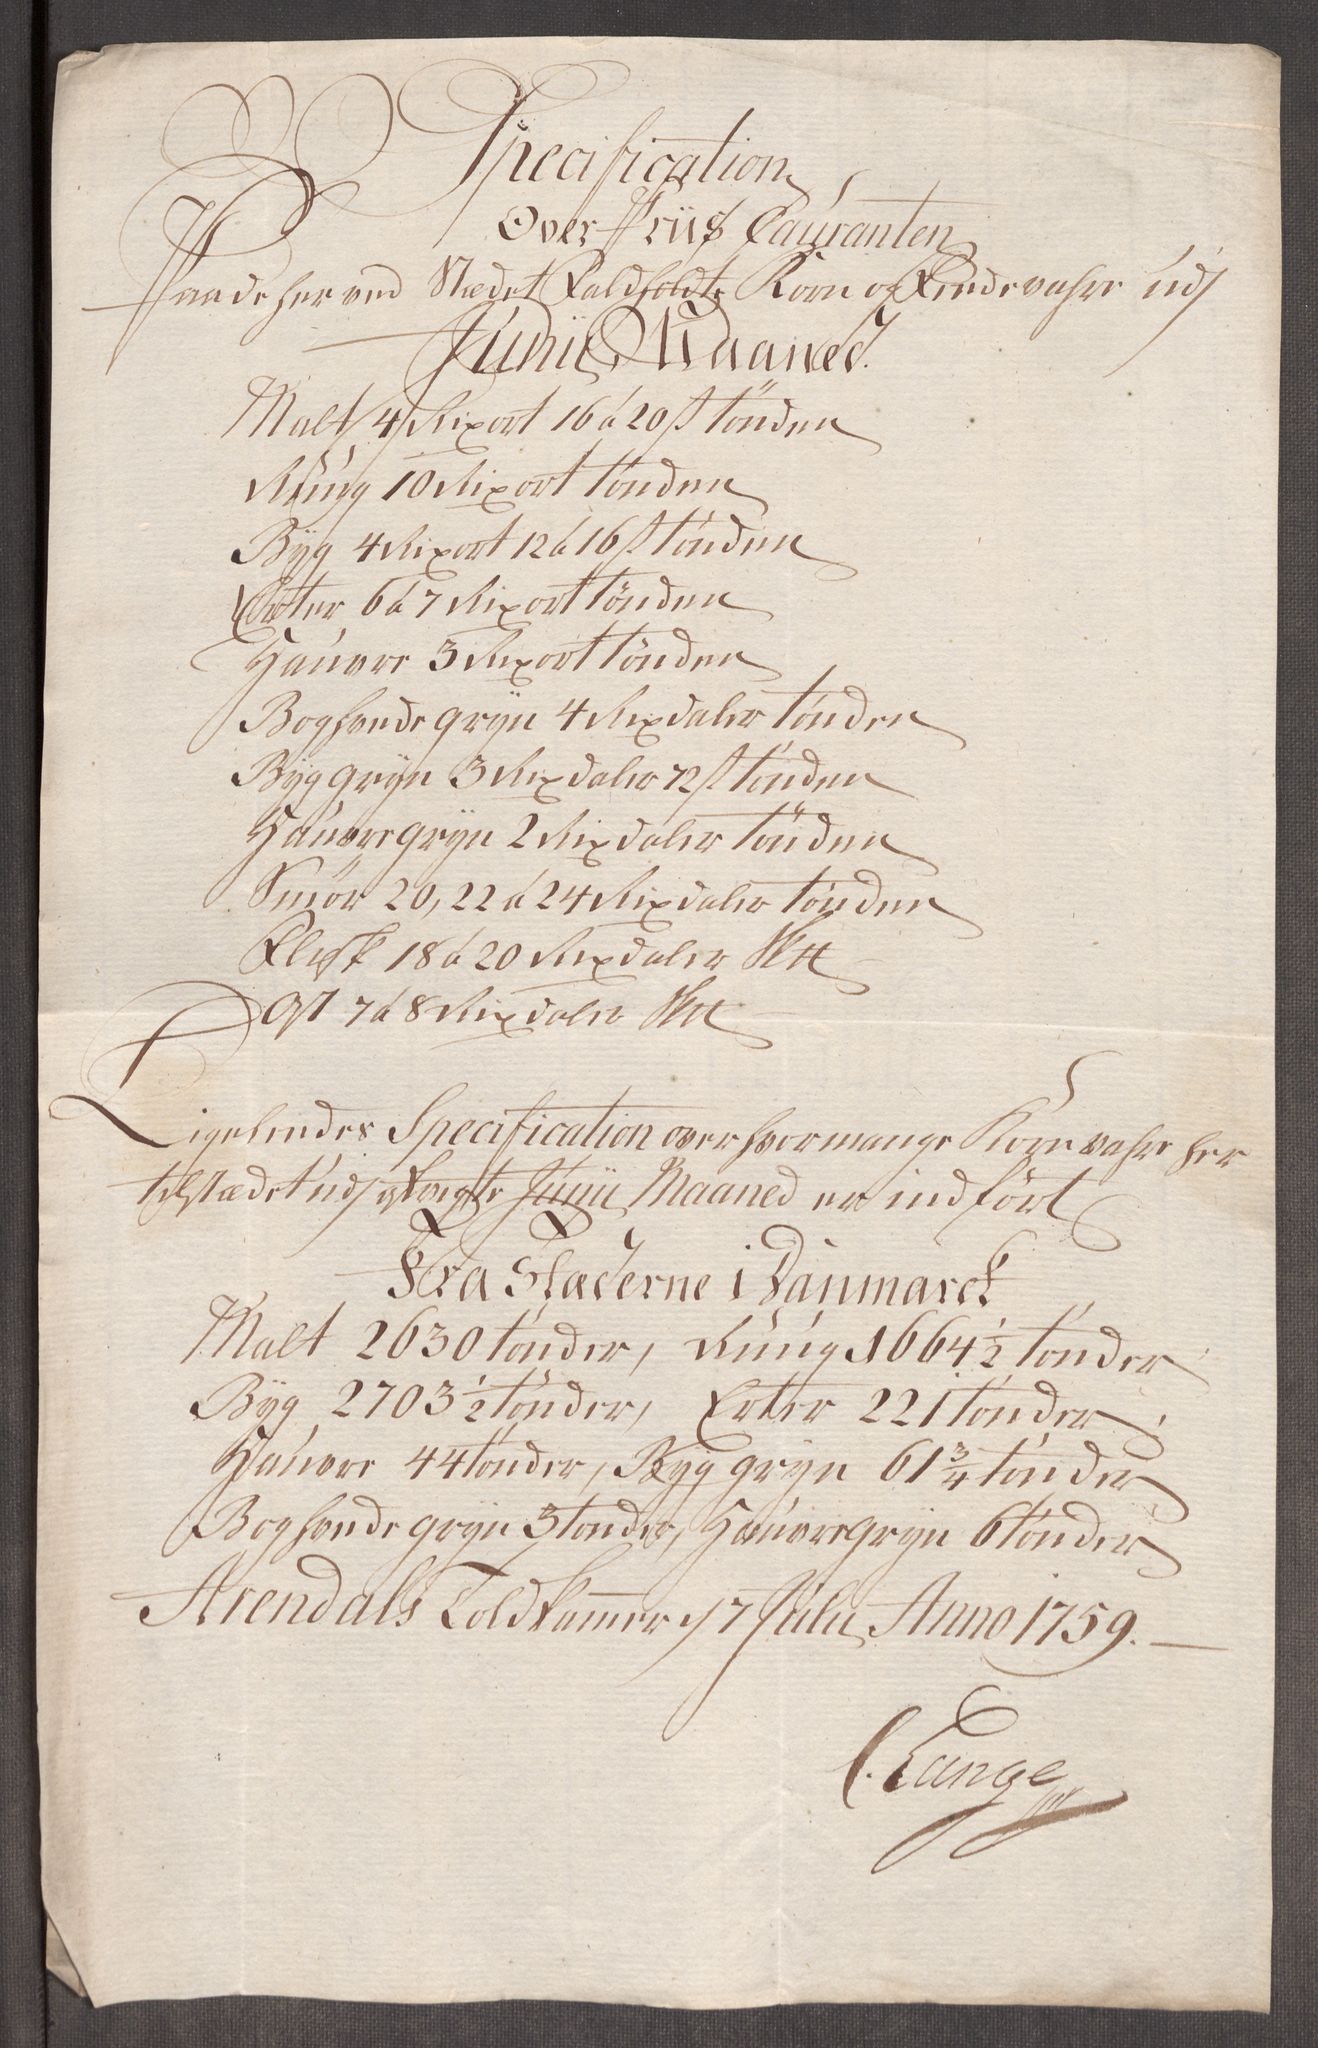 Specification
Over Priis Couranten
Paa de her ved Stædet Faldholdte Korn og Feede vahre udj
Junii Maaned.
Malt 4 Rixort 16 á 20 s tönden
Rüug 10 Rixort tönden
Byg 4 Rixort 12 á 16 s tönden
Erter 6 á 7 Rixort tönden
Hauvre 3 Rixort tönden
Boghvede gryn 4 Rixdaler tönden
Byg gryn 3 Rixdaler 72 s tönden
Hauvre gryn 2 Rixdaler tönden
Smör 20, 22 á 24 Rixdaler tönden
Flesk 18 á 20 Rixdaler Sktt
Ost 7 á 8 Rixdaler Sktt
Ligeleedes Specification over hvormange Korn vahre her
til stædet udj Junii Maaned er indfört
Fra Stæderne i Danmarck
Malt 2630 tönder, Rúug 1664 1/2 tönder
Byg 2703 1/2 tönder, Erter 221 tönder
Hauvre 44 tönder, Byg gryn 61 3/4 tönder
Boghvede gryn 3 tönder, Hauvre gryn 6 tönder
Arendals Toldkamer d 7 Julii Anno 1759.
C. Lange